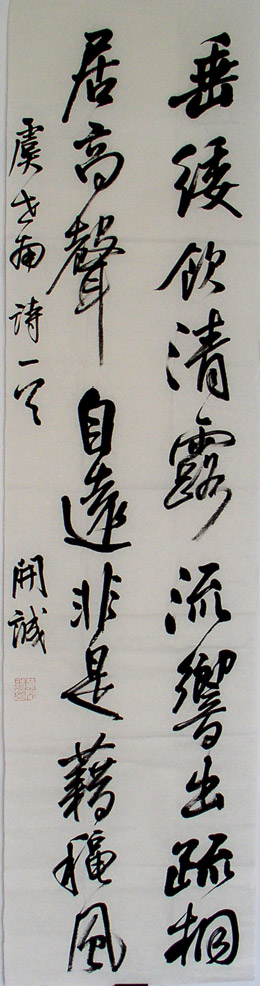 垂緌飲清露流響出疏桐
居高聲自遠非是藉穐風
虞世南詩一首 開誠